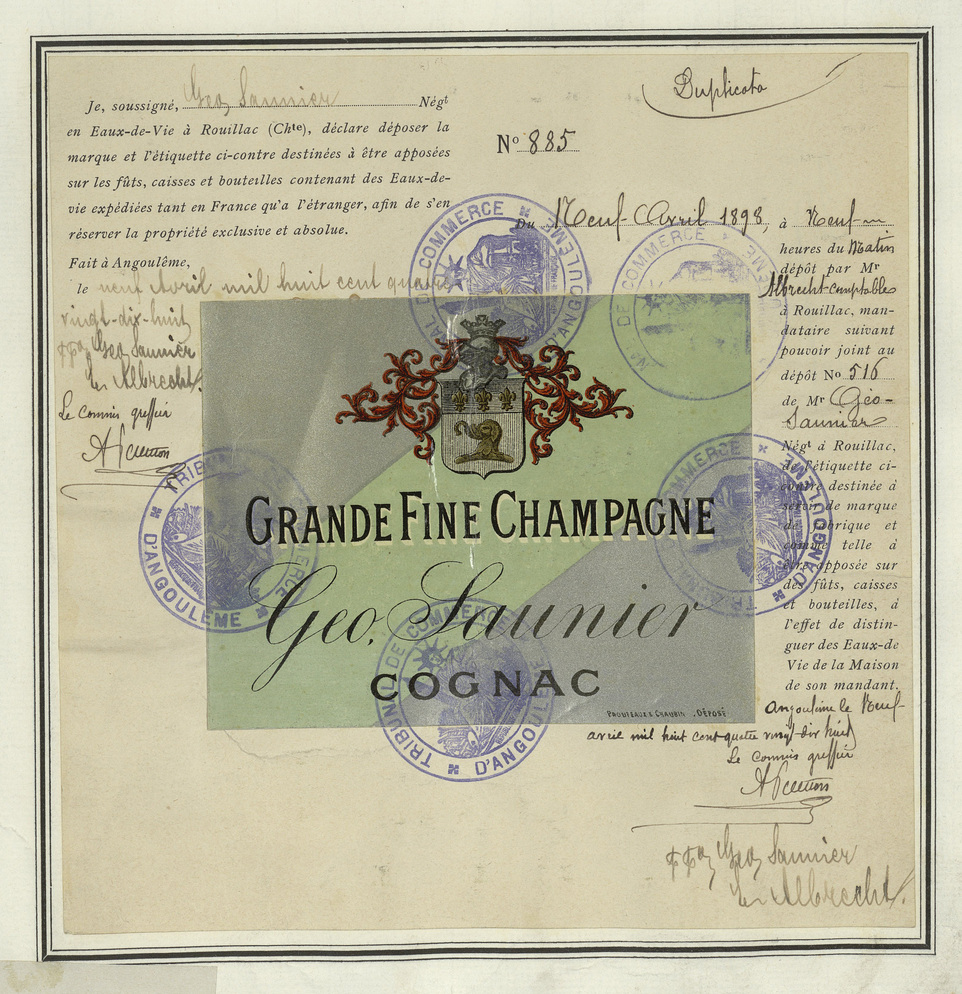 Je, soussigné, Geo Saunier Négt
en Eaux-de-Vie à Rouillac (Chte), déclare déposer la
marque et l'étiquette ci-contre destinées à être apposées
sur les fûts, caisses et bouteilles contenant des Eaux-de-
vie expédiées tant en France qu'a l'étranger, afin de s'en
réserver la propriété exclusive et absolue.
Fait à Angoulême,
le neuf Avril mil huit cent quatre
vingt-dix-huit
ppon Geo Saunier
Albrecht
Le commis greffier
Duplicata
No 885
Du Neuf Avril 1898, à Neuf
heures du Matin
dépôt par Mr
Albrecht Comptable
à Rouillac, man-
dataire suivant
pouvoir joint au
dépôt No 516
de Mr Géo
Saunier
Négt à Rouillac,
de l'étiquette ci-
contre destinée à
servir de marque
de fabrique et
comme telle à
être apposée sur
des fûts, caisses
et bouteilles, à
l'effet de distin-
guer des Eaux-de
Vie de la Maison
de son mandant.
Angoulême le Neuf
avril mil huit cent quatre vingt-dix huit
Le commis greffier
ppon Geo Saunier
Albrecht
GRANDE FINE CHAMPAGNE
Geo. Saunier
COGNAC
PROUTEAUX & CHAUBIN . DÉPOSÉ
TRIBUNAL DE COMMERCE
D'ANGOULEME
TRIBUNAL DE COMMERCE
D'ANGOULEME
TRIBUNAL DE COMMERCE
D'ANGOULEME